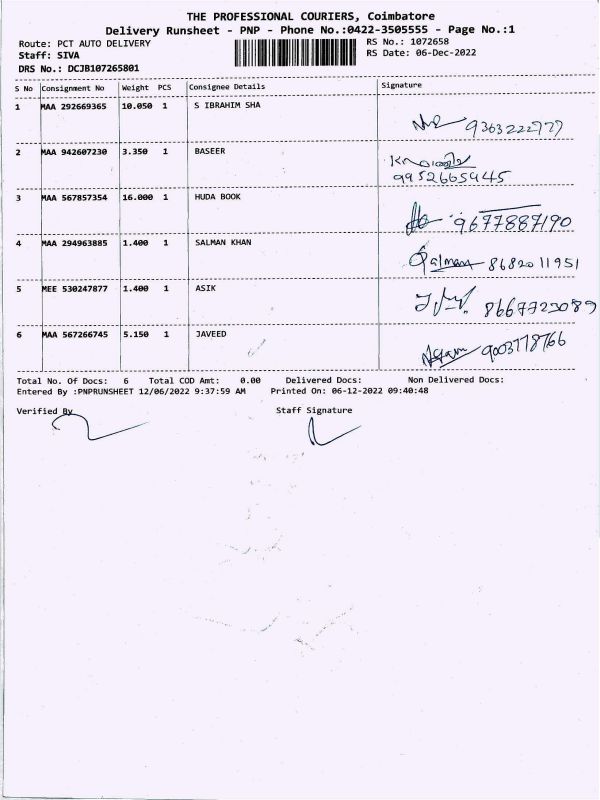 THE PROFESSIONAL COURIERS, Coimbatore
Delivery Runsheet - PNP - Phone No.:0422-3505555 - Page No.:1
Route: PCT AUTO DELIVERY RS No.: 1072658
Staff: SIVA RS Date: 06-Dec-2022
DRS No.: DCJB107265801
S No Consignment No Weight PCS Consignee Details Signature
1 MAA 292669365 10.050 1 S IBRAHIM SHA
9363222777
2 MAA 942607230 3.350 1 BASEER
9952665945
3 MAA 567857354 16.000 1 HUDA BOOK
9677887190
4 MAA 294963885 1.400 1 SALMAN KHAN
Salman 8682011951
5 MEE 530247877 1.400 1 ASIK
6 MAA 567266745 5.150 1 JAVEED
9003778766
Total No. Of Docs: 6 Total COD Amt: 0.00 Delivered Docs: Non Delivered Docs:
Entered By :PNPRUNSHEET 12/06/2022 9:37:59 AM Printed On: 06-12-2022 09:40:48
Verified By Staff Signature